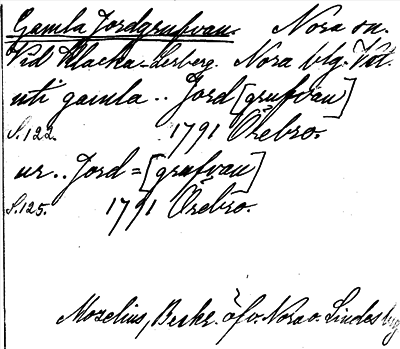 Gamla Jordgrufvan. Nora sn.
Vid Klacka-Lerberg. Nora blg. Vit.
uti gamla .. Jord [grufvan]
S. 122. 1791 Örebro.
ur .. Jord = [grufvan]
S. 125. 1791 Örebro.
Mozelius, Beskr. öfv. Nora o. Lindes blg